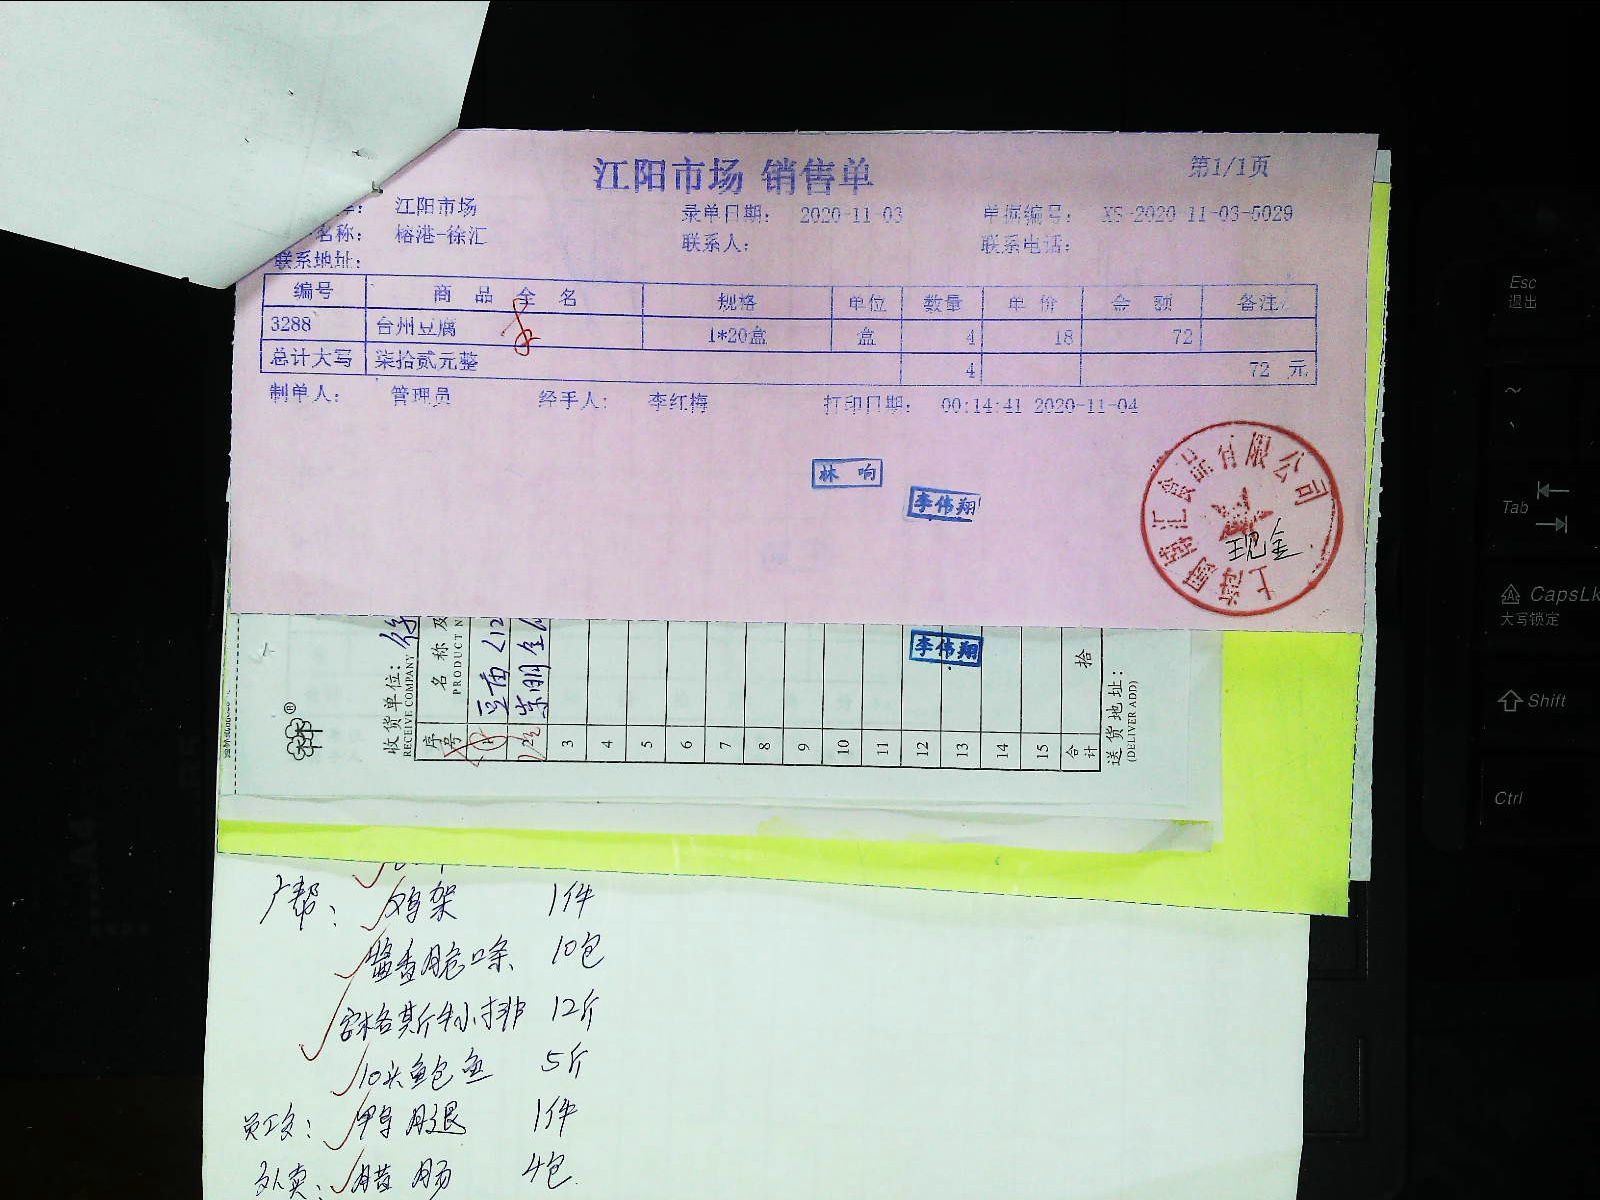 江阳市场 销售单
第1/1页
江阳市场
录单日期： 2020-11-03
单据编号： XS-2020-11-03-5029
名称： 榕港-徐汇
联系人：
联系电话：
联系地址：
编号 商品全名 规格 单位 数量 单价 金额 备注
3288 台州豆腐 1*20盒 盒 4 18 72
总计大写 柒拾贰元整 4 72 元
制单人： 管理员 经手人： 李红梅 打印日期： 00:14:41 2020-11-04
林响
李伟翔
食品有限公司
上海
现金
李伟翔
收货单位：
RECEIVE COMPANY
序号
名称及
PRODUCT N
1
2
3
4
5
6
7
8
9
10
11
12
13
14
15
合计
拾
送货地址：
(DELIVER ADD)
®
广帮： 鸡架 1件
酱香脆 10包
安格斯牛小排 12斤
10头鲍鱼 5斤
员工餐： 鸭腿 1件
外卖： 腊肠 4包
Esc
退出
~
Tab
CapsLk
大写锁定
Shift
Ctrl